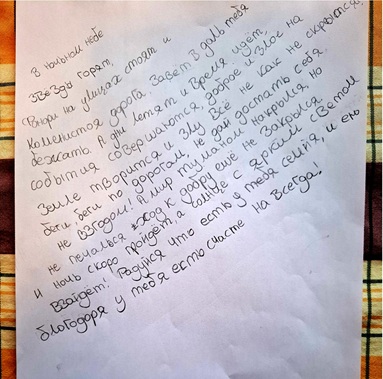 В ночьном небе
звёзды горят,
Фнори на улицах стоят и
Каменистоя дорога. Завёт в даль тебя
бежать. А дни летят и время идёт,
события совершаются, доброе и злое на
Земле творится и злу Всё не как не скрыться,
беги беги по дорогам, не дай достать себя
не взгодам! А мир туманом накрылся, но
не печалься вход к добру ещё не Закрылся
и ночь скоро пройдет, а солнце с ярким светом
Взайдёт! Радуйся что есть у тебя семья, и ею
благодоря у тебя есть счасте на Всегда!